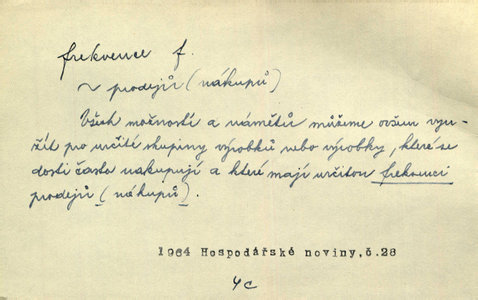 frekvence f.
~ prodejů (nákupů)
Všech možností a námětů můžeme ovšem vyu-
žít pro určité skupiny výrobků nebo výrobky, které se
dosti často nakupují a které mají určitou frekvenci
prodejů (nákupů).
1964 Hospodářské noviny, č.28
4c